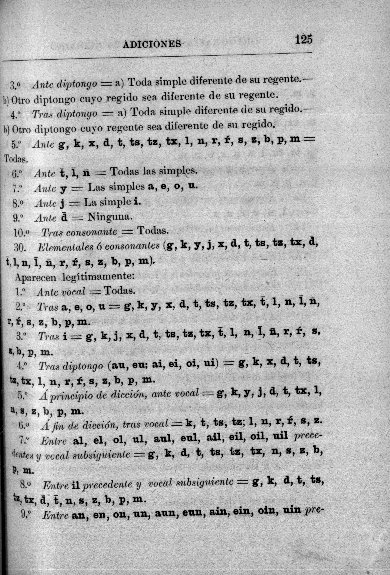 ADICIONES 125
3.º Ante diptongo = a) Toda simple diferente de su regente.—
b) Otro diptongo cuyo regido sea diferente de su regente.
4.º Tras diptongo = a) Toda simple diferente de su regido.—
b) Otro diptongo cuyo regente sea diferente de su regido.
5.º Ante g, k, x, d, t, ts, tz, tx, l, n, r, ŕ, s, z, b, p, m =
Todas.
6.º Ante t̄, l̄, n̄ = Todas las simples.
7.º Ante y = Las simples a, e, o, u.
8.º Ante j = La simple i.
9.º Ante d̄ = Ninguna.
10.º Tras consonante = Todas.
30. Elementales ó consonantes (g, k, y, j, x, d, t, ts, tz, tx, d̄,
t̄, l, n, l̄, n̄, r, ŕ, s, z, b, p, m).
Aparecen legítimamente:
1.º Ante vocal = Todas.
2.º Tras a, e, o, u = g, k, y, x, d, t, ts, tz, tx, t̄, l, n, l̄, n̄,
r, ŕ, s, z, b, p, m.
3.º Tras i = g, k, j, x, d, t, ts, tz, tx, t̄, l, n, l̄, n̄, r, ŕ, s,
z, b, p, m.
4.º Tras diptongo (au, eu; ai, ei, oi, ui) = g, k, x, d, t, ts,
tz, tx, l, n, r, ŕ, s, z, b, p, m.
5.º A principio de dicción, ante vocal = g, k, y, j, d, t, tx, l,
n, s, z, b, p, m.
6.º A fin de dicción, tras vocal = k, t, ts, tz; l, n, r, ŕ, s, z.
7.º Entre al, el, ol, ul, aul, eul, ail, eil, oil, uil prece-
dentes y vocal subsiguiente = g, k, d, t, ts, tz, tx, n, s, z, b,
p, m.
8.º Entre il precedente y vocal subsiguiente = g, k, d, t, ts,
tz, tx, d̄, t̄, n, s, z, b, p, m.
9.º Entre an, en, on, un, aun, eun, ain, ein, oin, uin pre-